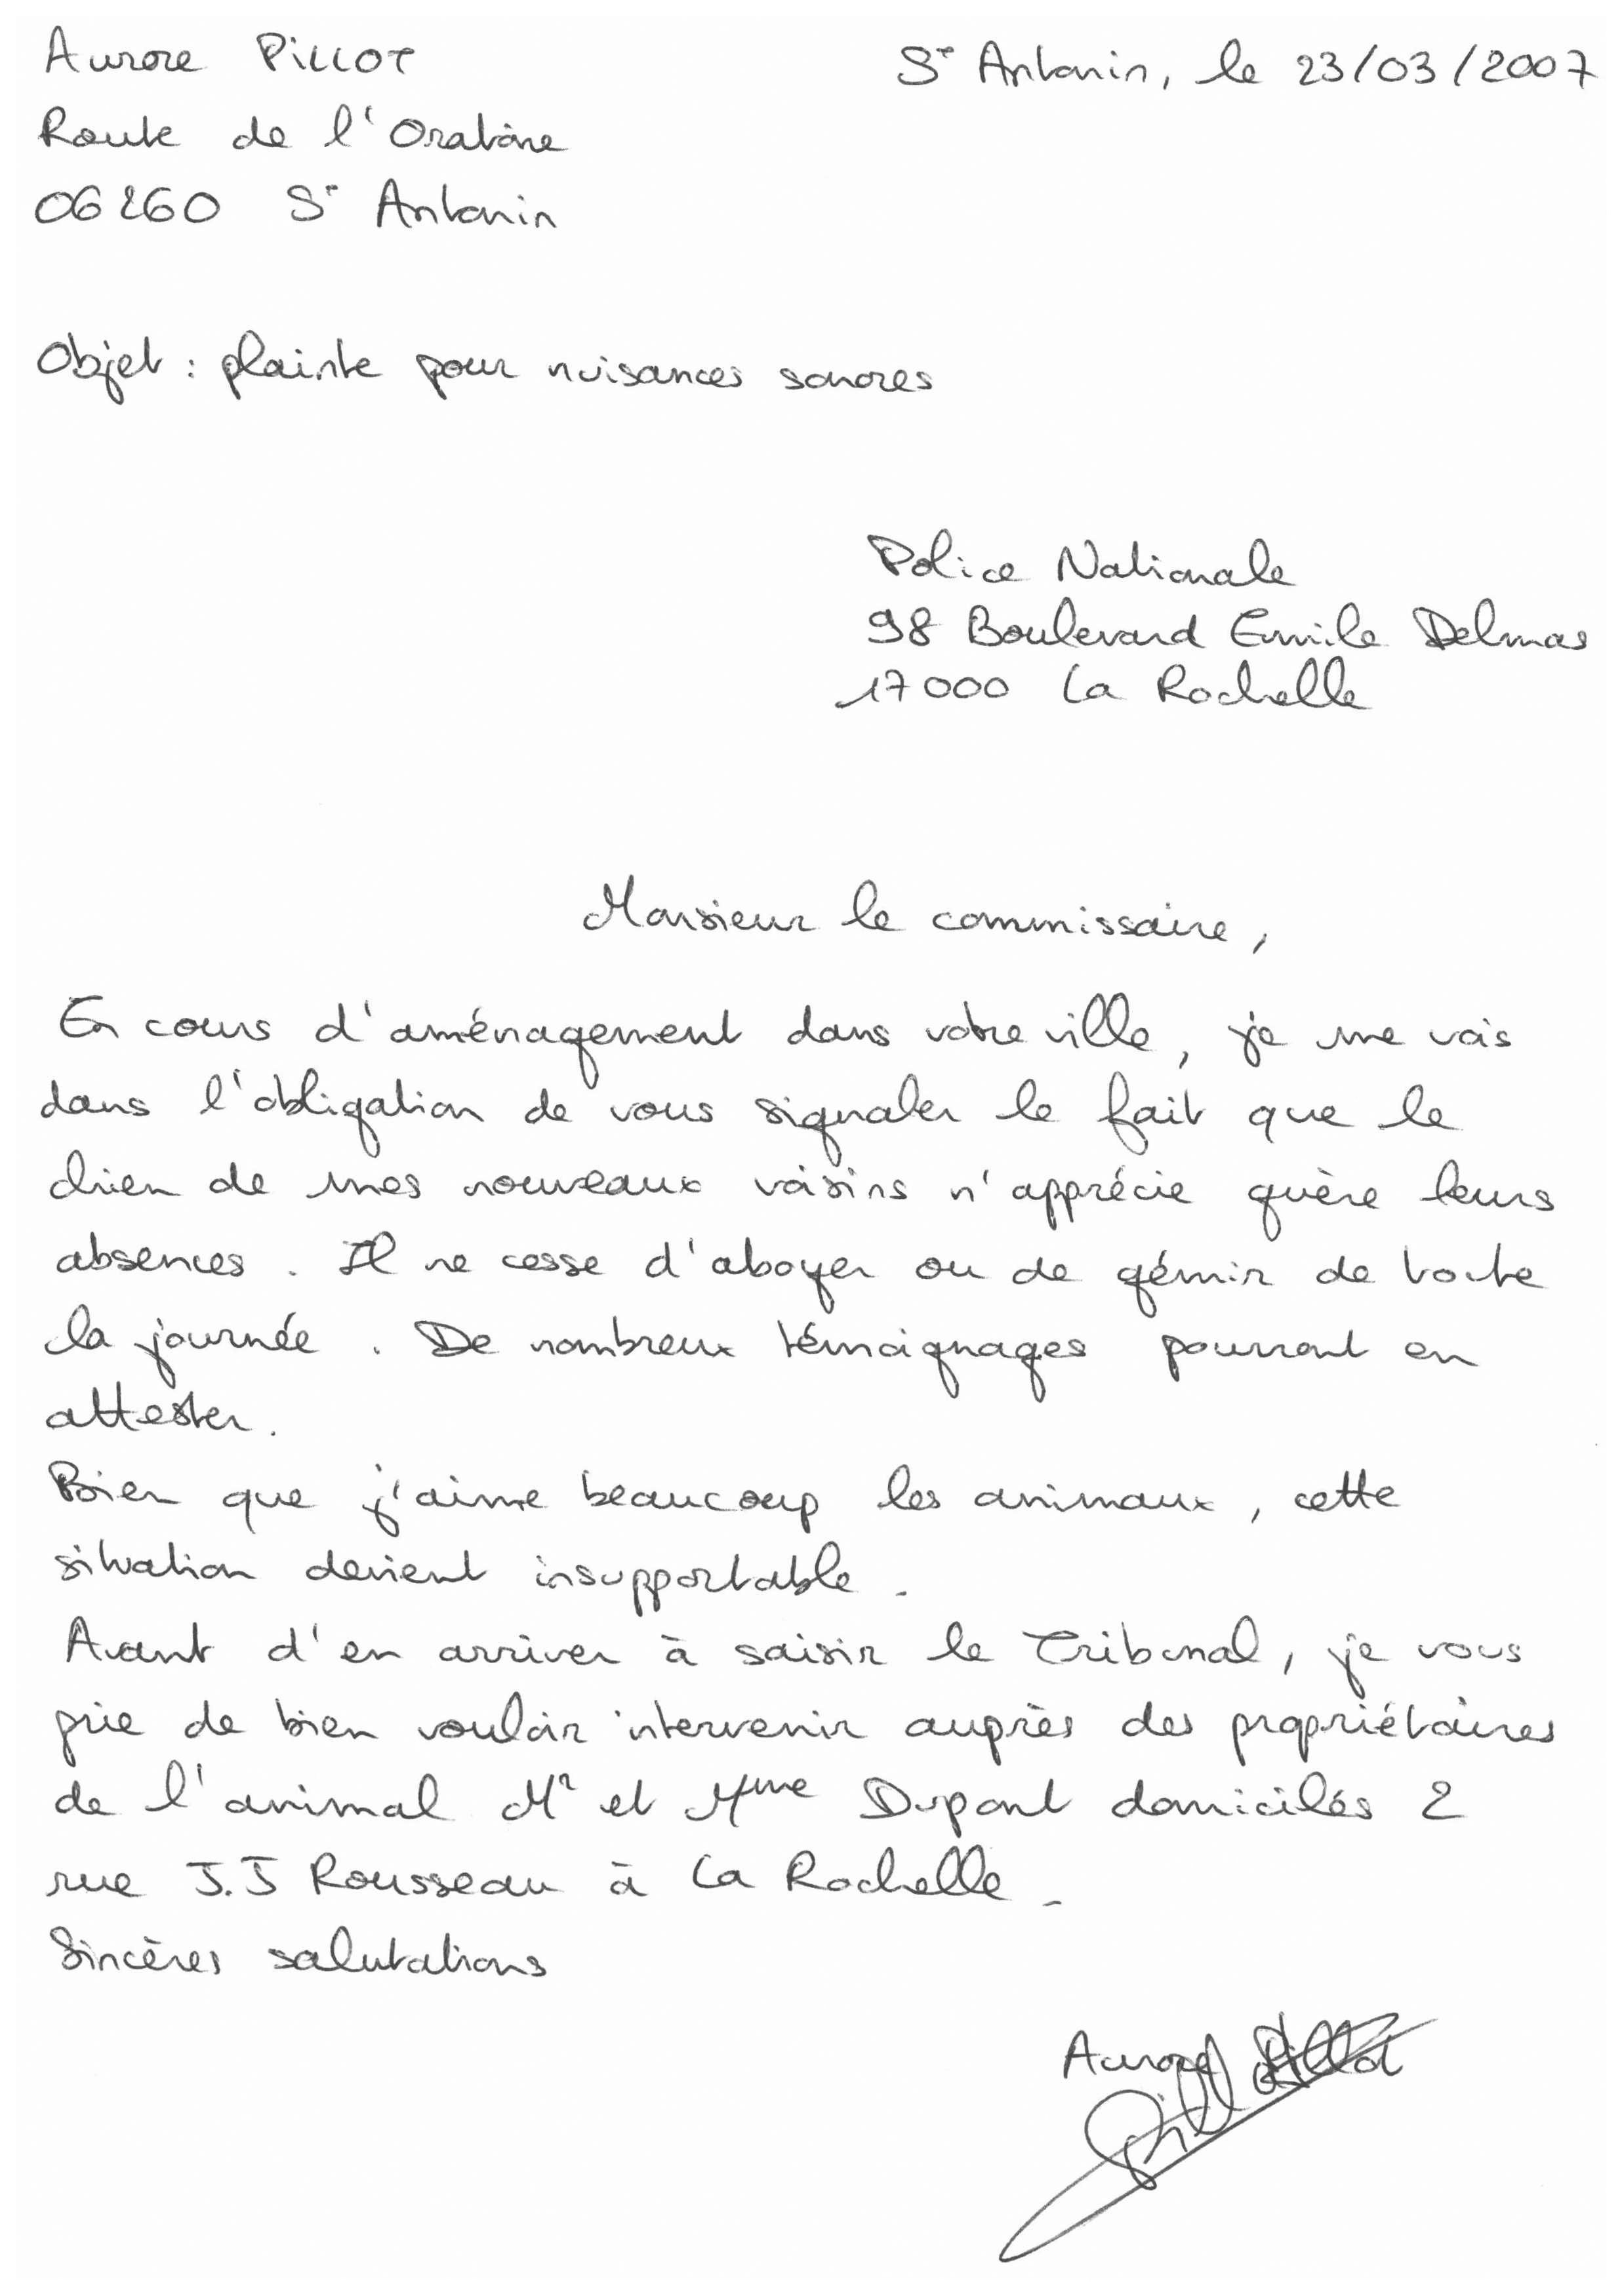 Aurore PILLOT
St Antonin, le 23/03/2007
Route de l'Oratoire
06260 St Antonin
Objet : plainte pour nuisances sonores
Police Nationale
98 Boulevard Emile Delmas
17000 La Rochelle
Monsieur le commissaire,
En cours d'aménagement dans votre ville, je me vois
dans l'obligation de vous signaler le fait que le
chien de mes nouveaux voisins n'apprécie guère leurs
absences. Il ne cesse d'aboyer ou de gémir de toute
la journée. De nombreux témoignages pourront en
attester.
Bien que j'aime beaucoup les animaux, cette
situation devient insupportable.
Avant d'en arriver à saisir le Tribunal, je vous
prie de bien vouloir intervenir auprès des propriétaires
de l'animal Mr et Mme Dupont domiciliés 2
rue J.J Rousseau à La Rochelle.
Sincères salutations
Aurore Pillot